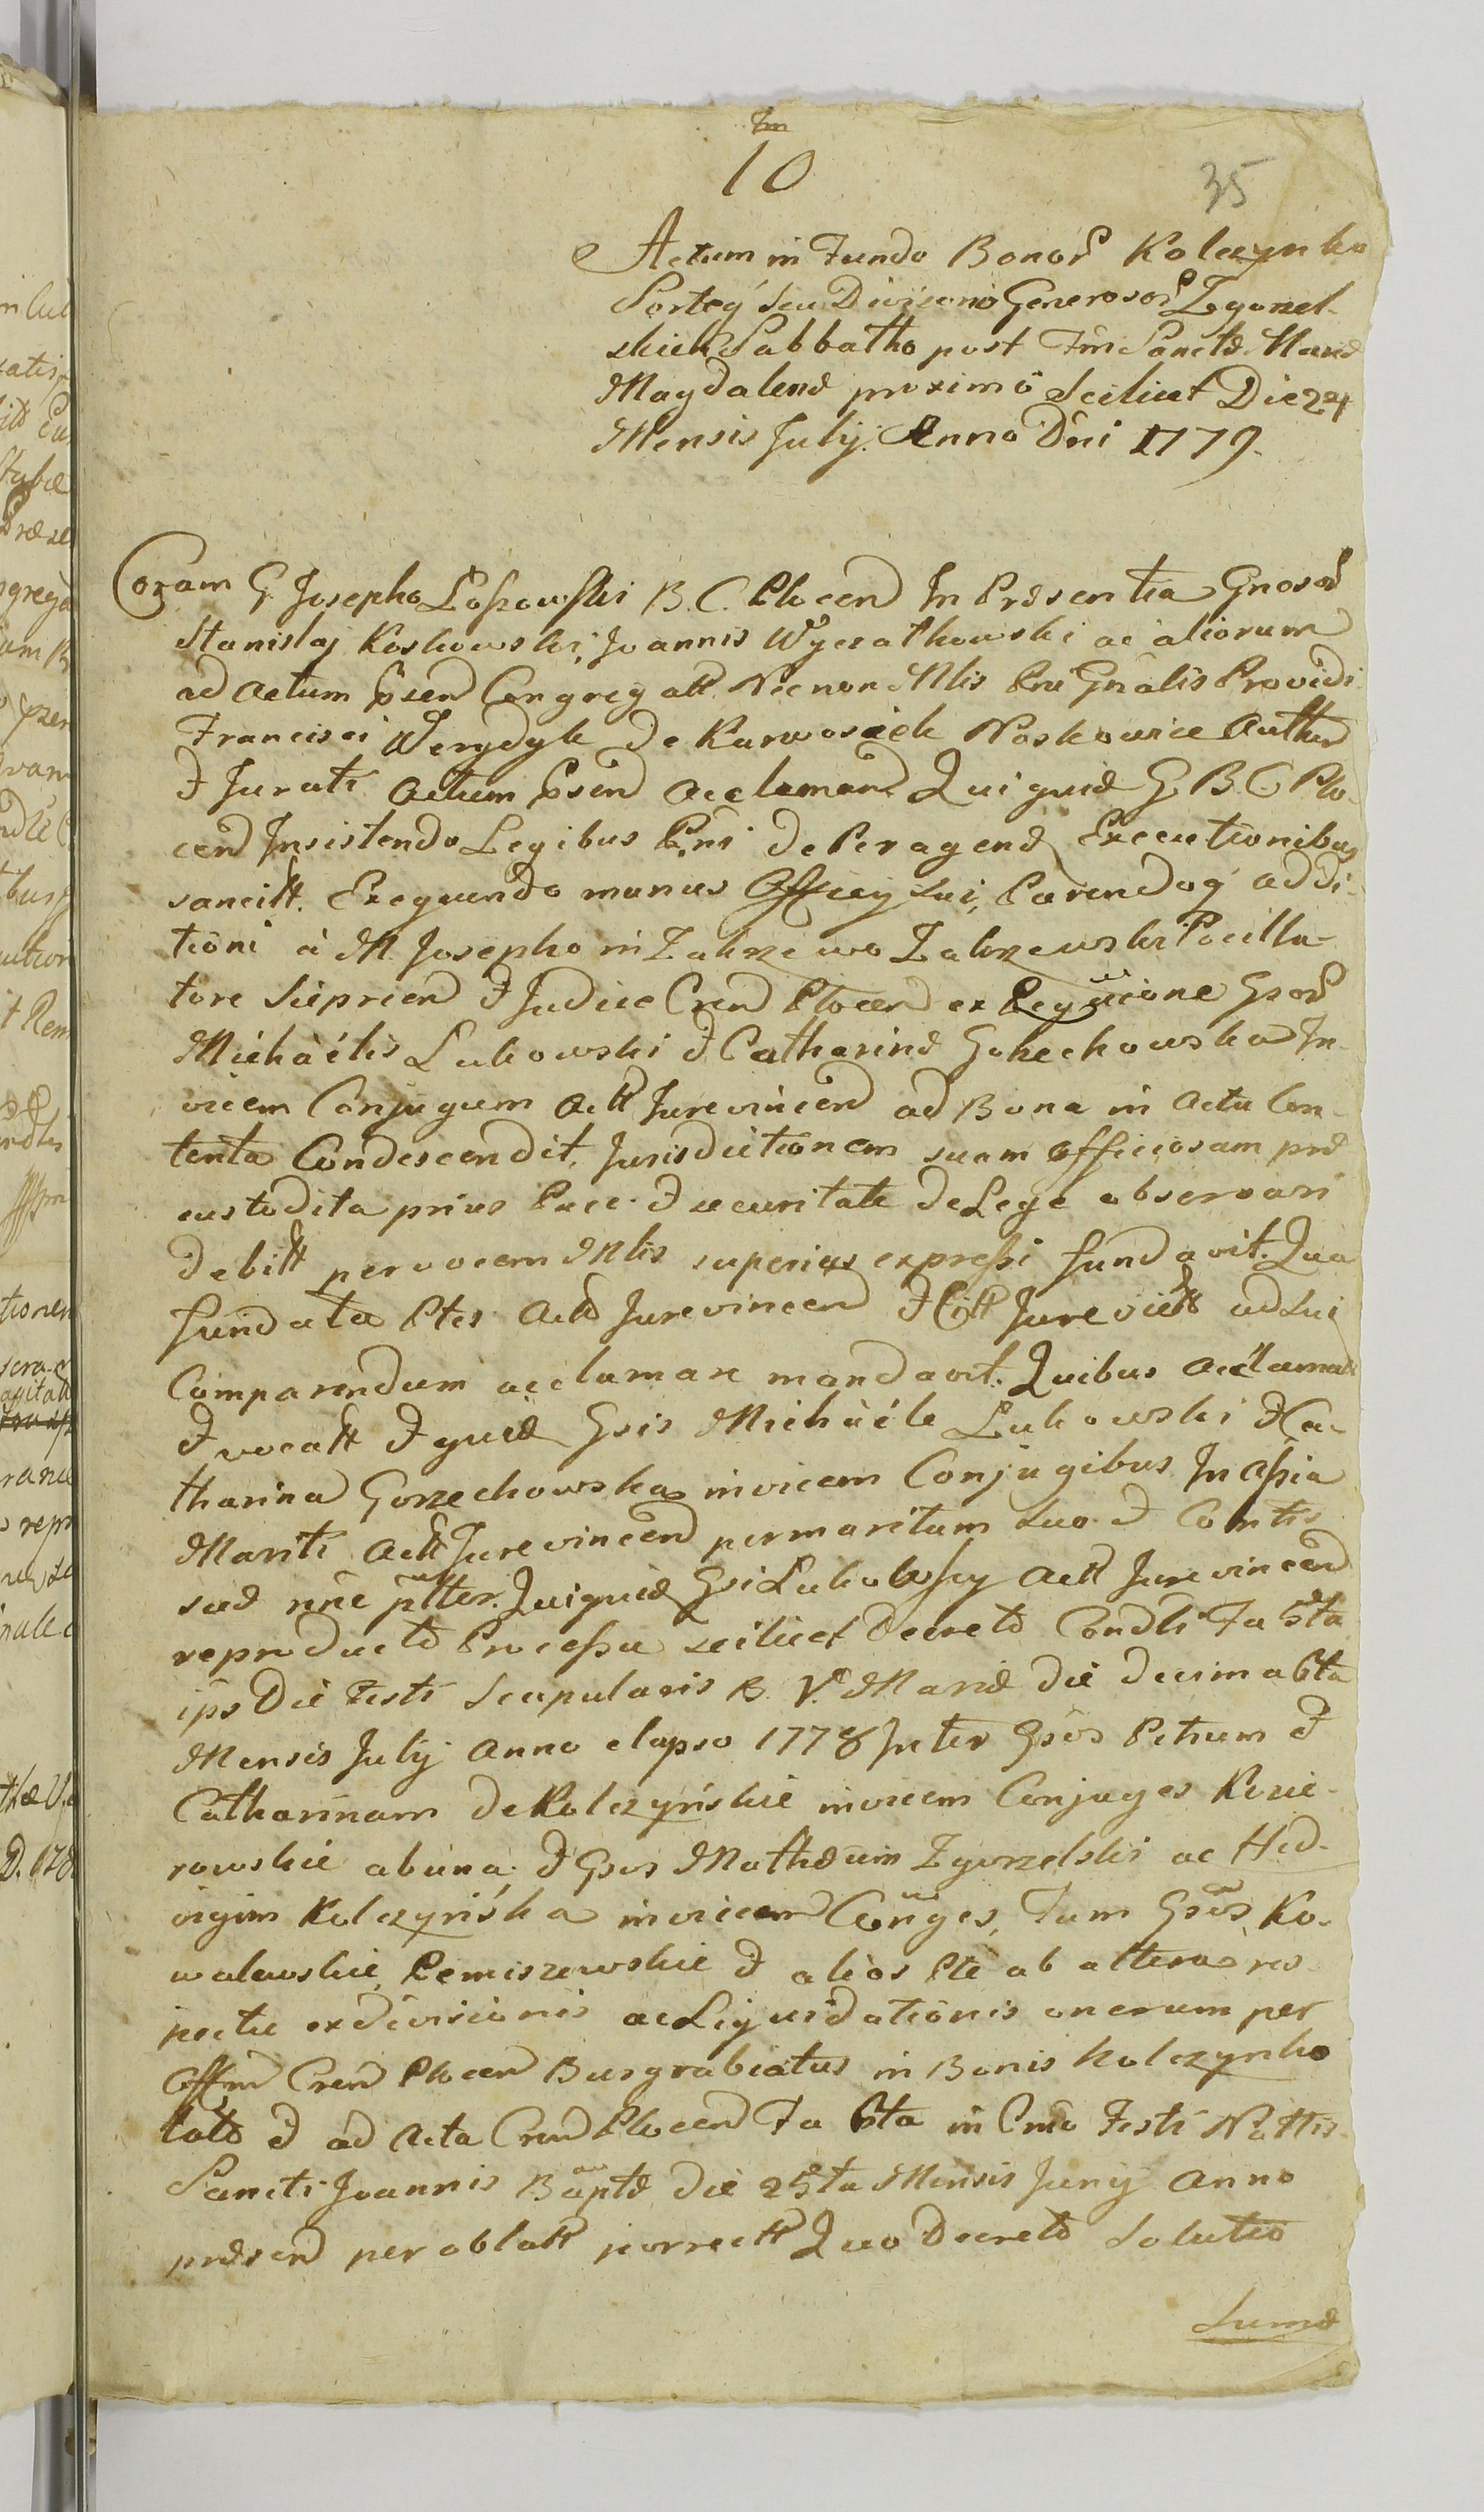 Tm
10
35
Actum in Fundo Bonor Kolczynko
Sorteg seu Divisionis Generosor Zgorzel-
skich Sabbatho post Fm Sanctæ Mariæ
Magdalenæ proximo scilicet Die 24
Mensis July. Anno Dni 1779.
Coram G. Josepho Loszowski B. C. Plocen In Præsentia Gnosor
Stanislaj Koskowski, Joannis Wyczathowski ac aliorum
ad Actum Psen Congregatt. Necnon Mlis Pru Gnalis Providi
Francisci Werydyk de Karwosiek Noskowice Authen
& Jurati Actum Psen Acclaman Quiquid G. B. C. Plo-
cen Insistendo Legibus Pni de Peragend Executionibus
sancitt. Exequendo munus Officy sui, Parendoq addi-
tioni à M. Josepho in Zakrzewo Zakrzewski Pocilla-
tore Sieprcen & Judice Cren Plocen ex Requicione Gsor
Michàélis Lukowski & Catharinæ Gorzechowska In-
vicem Conjugum Actt Jurevincen ad Bona in Actu Con-
tenta Condescendit, Jurisdictionem suam officiosam præ
custodita prius Pace & securitate de Lege observari
debitt per vocem Mlis superius expressi fundavit. Qua
fundata Ptes Actt Jurevincen & Citt Jurevictt ad sui
Comparendum acclamare mandavit. Quibus Acclamatt
& vocatt & quid Gsis Michàéle Lukowski & Ca-
tharina Gorzechowska invicem Conjugibus In Assia
Mariti Actt Jurevincen per maritum suo & Contis
suæ nne plter. Quiquid Gsi Lukowscy Actt Jurevincen
reproducto Processu scilicet Decreto Condli Fa 5ta
ips Die Festi Scapularis B. V. Mariæ die decima 6ta
Mensis July Anno elapso 1778 Inter Gsos Petrum &
Catharinam de Kolczyńskie invicem Conjuges Kosie-
rowskie ab una, & Gsos Mathæum Zgorzelski ac Hed-
vigim Kolczyńska invicem Conges, Tum Gsos Ko-
walewskie, Remiszewskie & alios Pte ab altera res-
pectu exdivisionis ac Liquidationis onerum per
Offm Cren Plocen Burgrabiatus in Bonis Kolczynko
lato & ad Acta Cren Plocen Fa 6ta in Cnro Festi Nattis
Sancti Joannis Baptæ Die 25ta Mensis Juny Anno
præsen per oblatt porrectt Quo Decreto Solutio
Sumæ